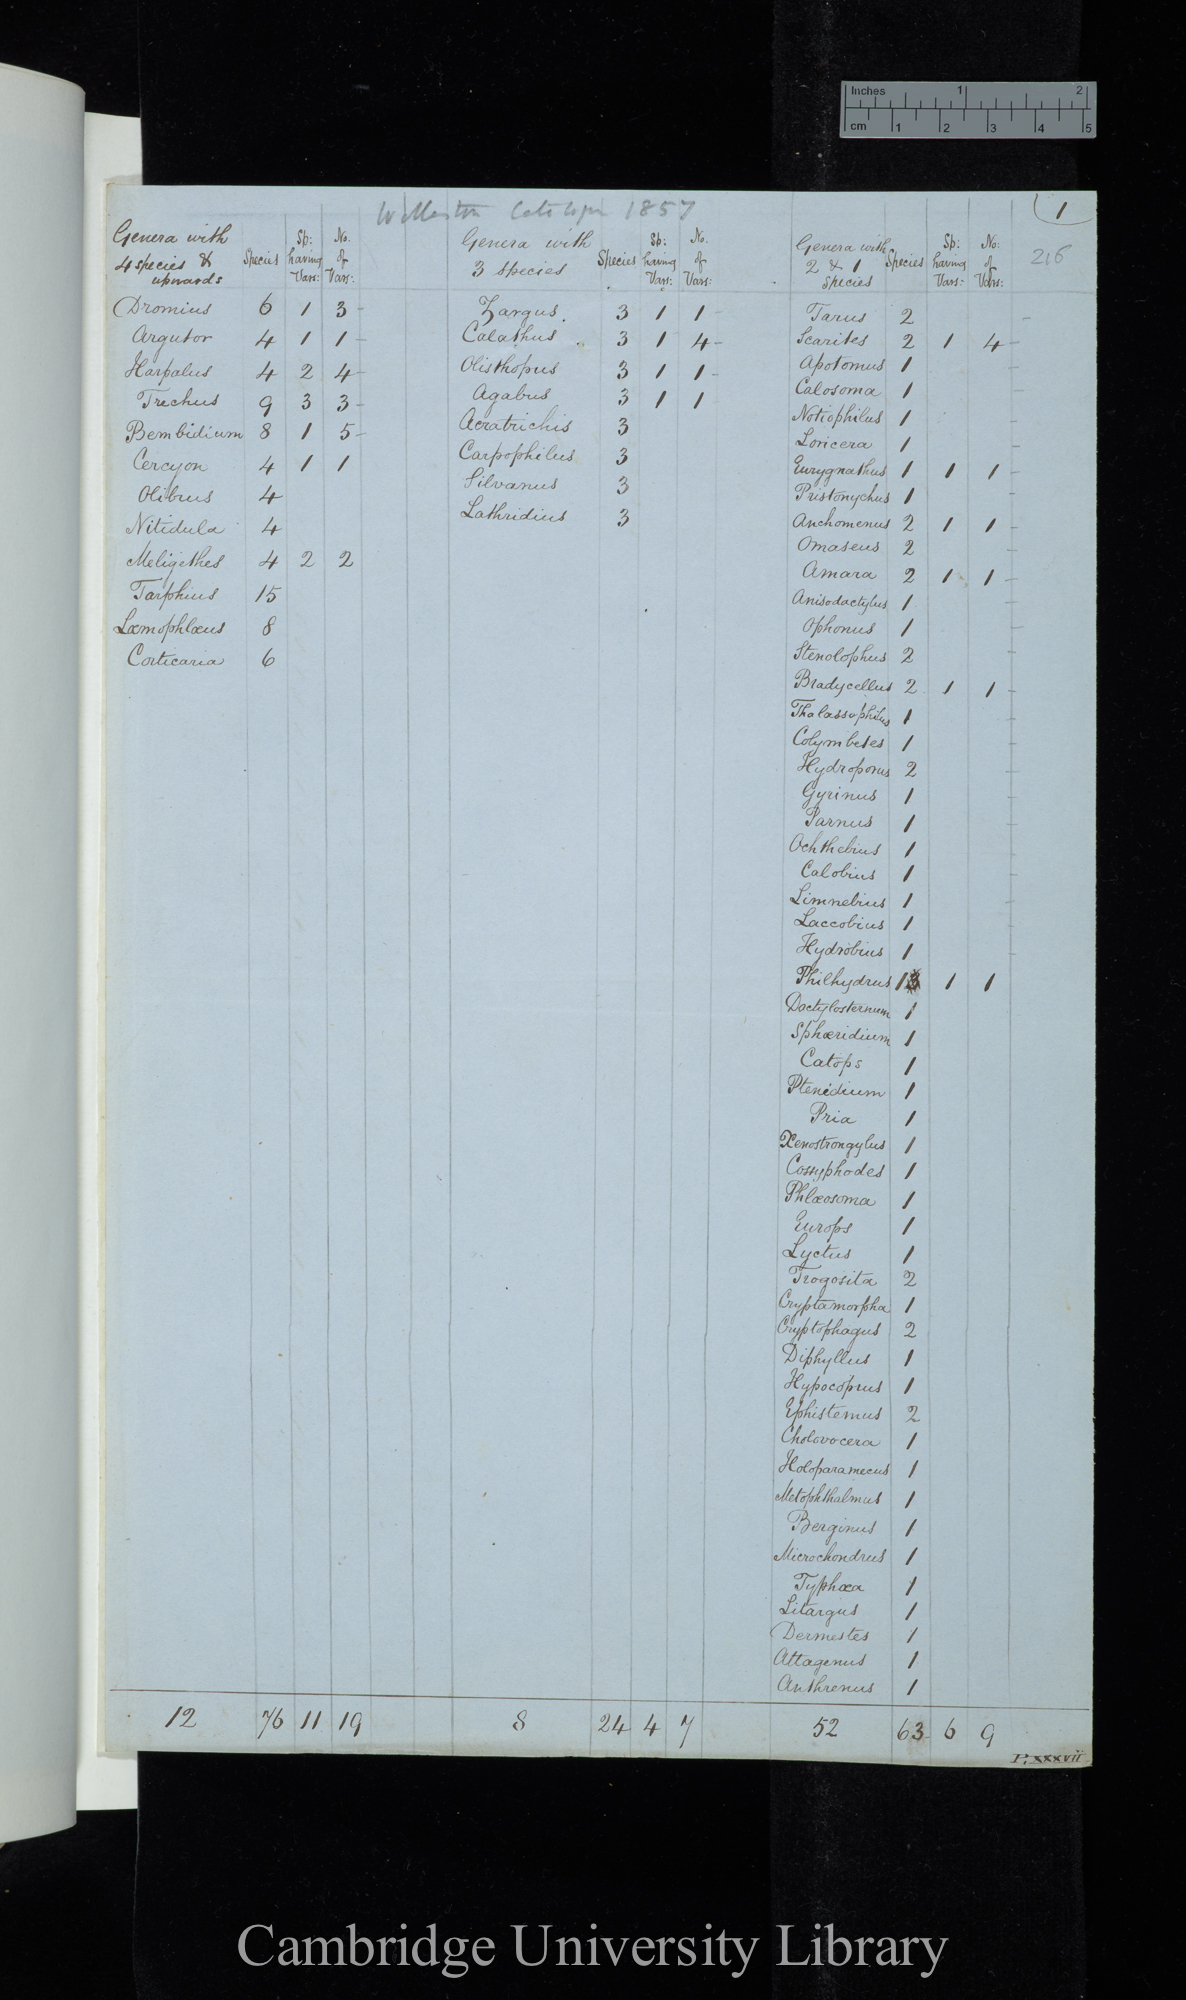 Inches 1 2
cm 1 2 3 4 5
Wollaston Catalogue 1857
1
216
Genera with 4 species & upwards Species Sp: having Vars: No. of Vars:
Dromius 6 1 3 -
Argutor 4 1 1 -
Harpalus 4 2 4 -
Trechus 9 3 3 -
Bembidium 8 1 5 -
Cercyon 4 1 1
Olibrus 4
Nitidula 4
Meligethes 4 2 2
Tarphius 15
Læmophlæus 8
Corticaria 6
12 76 11 19
Genera with 3 species Species Sp: having Vars: No. of Vars:
Zargus 3 1 1 -
Calathus 3 1 4 -
Olisthopus 3 1 1 -
Agabus 3 1 1
Acratrichis 3
Carpophilus 3
Silvanus 3
Lathridius 3
8 24 4 7
Genera with 2 & 1 species Species Sp: having Vars: No: of Vars:
Tarus 2
Scarites 2 1 4 -
Apotomus 1
Calosoma 1
Notiophilus 1
Loricera 1
Eurygnathus 1 1 1 -
Pristonychus 1
Anchomenus 2 1 1 -
Omaseus 2
Amara 2 1 1 -
Anisodactylus 1
Ophonus 1
Stenolophus 2
Bradycellus 2 1 1 -
Thalassophilus 1
Colymbetes 1
Hydroporus 2
Gyrinus 1
Parnus 1
Ochthebius 1
Calobius 1
Limnebius 1
Laccobius 1
Hydrobius 1
Philhydrus 1 1 1
Dactylosternum 1
Sphæridium 1
Catops 1
Ptenidium 1
Pria 1
Xenostrongylus 1
Cossyphodes 1
Phlæosoma 1
Europs 1
Lyctus 1
Trogosita 2
Cryptamorpha 1
Cryptophagus 2
Diphyllus 1
Hypocoprus 1
Ephistemus 2
Cholovocera 1
Holoparamecus 1
Metophthalmus 1
Berginus 1
Microchondrus 1
Typhæa 1
Litargus 1
Dermestes 1
Attagenus 1
Anthrenus 1
52 63 6 9
P. xxxvii
Cambridge University Library